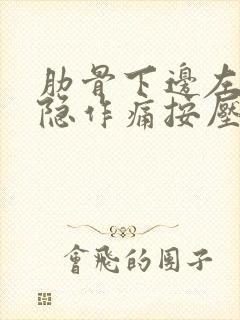 肋骨下邊左
隐作痛按壓
會飛的團子